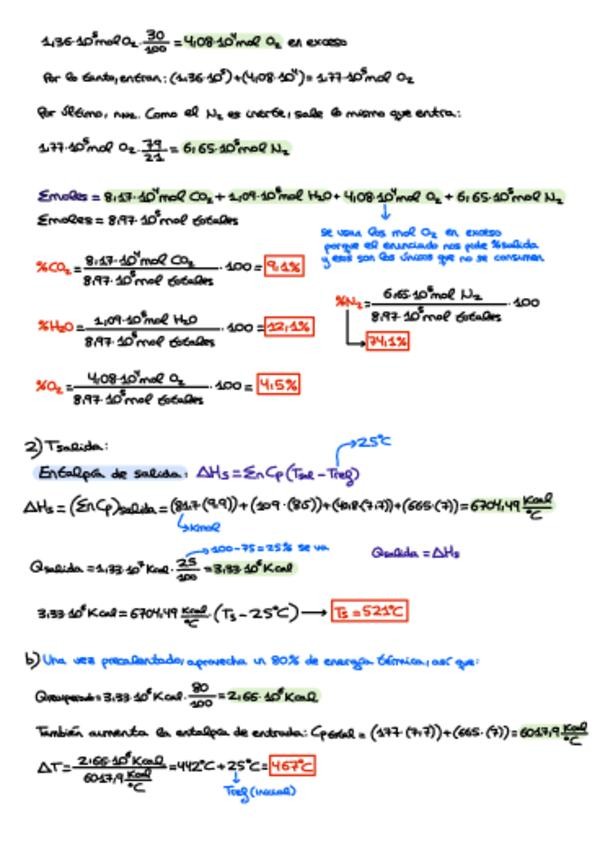 1,36·10⁵mol O₂·30/100 = 4,08·10⁴mol O₂ en exceso
Por lo tanto, entran: (1,36·10⁵)+(4,08·10⁴)= 1,77·10⁵mol O₂
Por último, nN₂. Como el N₂ es inerte, sale lo mismo que entra:
1,77·10⁵mol O₂·79/21 = 6,65·10⁵mol N₂
Σmoles = 8,17·10⁴mol CO₂ + 1,09·10⁵mol H₂O + 4,08·10⁴mol O₂ + 6,65·10⁵mol N₂
Σmoles = 8,97·10⁵mol totales
se usan los mol O₂ en exceso
porque el enunciado nos pide %salida
y esos son los únicos que no se consumen
%CO₂ = 8,17·10⁴mol CO₂/8,97·10⁵mol totales · 100 = 9,1%
%N₂ = 6,65·10⁵mol N₂/8,97·10⁵mol totales · 100
74,1%
%H₂O = 1,09·10⁵mol H₂O/8,97·10⁵mol totales · 100 = 12,1%
%O₂ = 4,08·10⁴mol O₂/8,97·10⁵mol totales · 100 = 4,5%
2) Tsalida:
25°C
Entalpía de salida: ΔHs = ΣnCp (Tsal - Tref)
ΔHs = (ΣnCp)salida = (81,7·(9,9))+(109·(8,5))+(40,8·(7,7))+(665·(7)) = 6704,49 Kcal/°C
kmol
100-75 = 25% se va
Qsalida = 1,33·10⁷Kcal·25/100 = 3,33·10⁶Kcal
Qsalida = ΔHs
3,33·10⁶Kcal = 6704,49 Kcal/°C·(Ts - 25°C) → Ts = 521°C
b) Una vez precalentado, aprovecha un 80% de energía térmica, así que:
Qrecuperado = 3,33·10⁶Kcal·80/100 = 2,66·10⁶Kcal
También aumenta la entalpía de entrada: Cptotal = (177·(7,7))+(665·(7)) = 6017,9 Kcal/°C
ΔT = 2,66·10⁶Kcal/6017,9 Kcal/°C = 442°C + 25°C = 467°C
Tref (inicial)